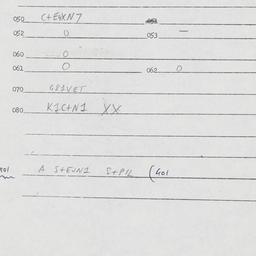 050 C+EVKN7
052 0 053 —
060 0
061 0 062 0
070 G81VET
080 K1C+N1 XX
401 A S+EVN1 S+P12 (401